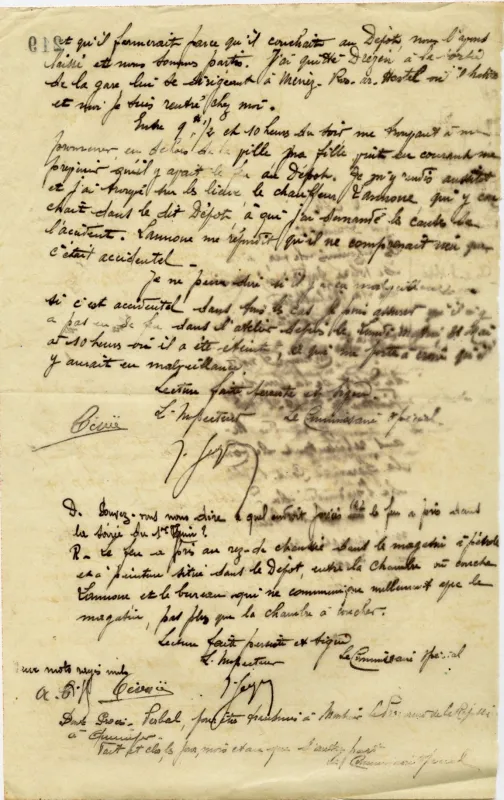 219
et qu'il fermerait parce qu'il couchait au Dépôt, nous l'avons
laissé et nous sommes partis. J'ai quitté Drezen à la sortie
de la gare lui se dirigeant à
et moi je suis rentré chez moi.
Entre 9h 1/2 et 10 heures du soir me trouvant à me
promener en dehors de la ville ma fille vint en courant me
prévenir qu'il y avait le feu au Dépôt. Je m'y rendis aussitôt
et j'ai trouvé sur les lieux le chauffeur Lannone, qui
couchait dans le dit Dépôt, à qui j'ai demandé la cause de
l'accident. Lannone me répondit qu'il ne comprenait rien que
c'était accidentel.
Je ne puis dire si il y a eu malveillance
si c'est accidentel dans tous les cas je puis assurer qu'il n'y
a pas eu de feu dans l'atelier depuis le Lundi
à 10 heures où il a été éteint, ce qui me porte à croire qu'il
y aurait eu malveillance.
Lecture faite persiste et signe.
L'Inspecteur Le Commissaire spécial
D. Pouvez-vous nous dire à quel endroit précis le feu a pris dans
la soirée du
R. Le feu a pris au rez-de-chaussée dans le magasin à pétrole
et à peinture situé dans le Dépôt, entre la chambre où couche
Lannone et le bureau qui ne communique nullement avec le
magasin, pas plus que la chambre à coucher.
Lecture faite persiste et signe
L'Inspecteur Le Commissaire spécial
mots rayés nuls
Procès-Verbal, pour être transmis à Monsieur le Procureur de la République
à Quimper.
Fait et clos, le jour, mois et an que d'autre part
Commissaire spécial